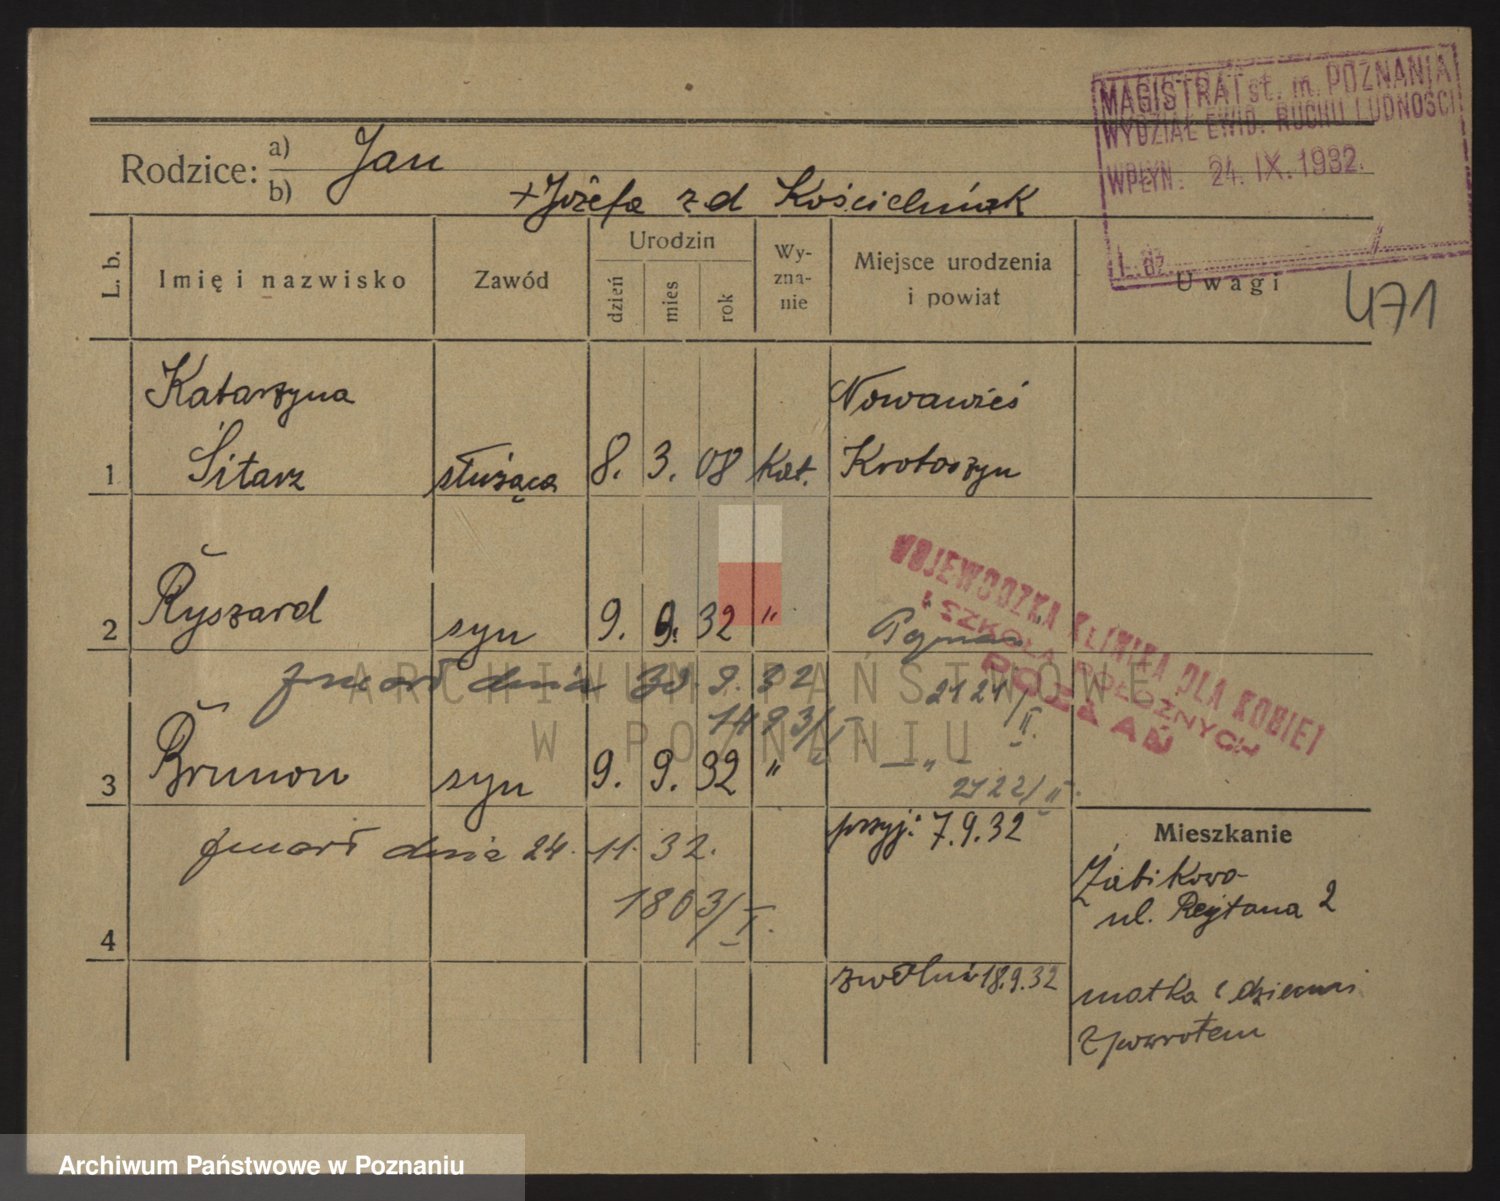 MAGISTRAT st. m. POZNANIA
WYDZIAŁ EWID. RUCHU LUDNOŚCI
WPŁYN: 24. IX. 1932.
L. dz.
Rodzice: a) Jan
b) +Józefa z d Kościelniak
471
L. b. Imię i nazwisko Zawód Urodzin dzień mies rok Wy-zna-nie Miejsce urodzenia i powiat Uwagi
Katarzyna Nowawieś
1 Sitarz służąca 8. 3. 08 Kat. Krotoszyn
WOJEWÓDZKA KLINIKA DLA KOBIET
I SZKOŁA POŁOŻNYCH
POZNAŃ
2 Ryszard syn 9. 9. 32 " Poznań
zmarł dnia 30. 9. 32 2121/II.
1493/I.
3 Brunon syn 9. 9. 32 " — " —
2122/II.
zmarł dnia 24. 11. 32.
1803/I.
4
przyj: 7.9.32
zwolni 18.9.32
Mieszkanie
Żabikowo
ul. Rejtana 2
matka z dziećmi
z powrotem
ARCHIWUM PAŃSTWOWE
W POZNANIU
Archiwum Państwowe w Poznaniu